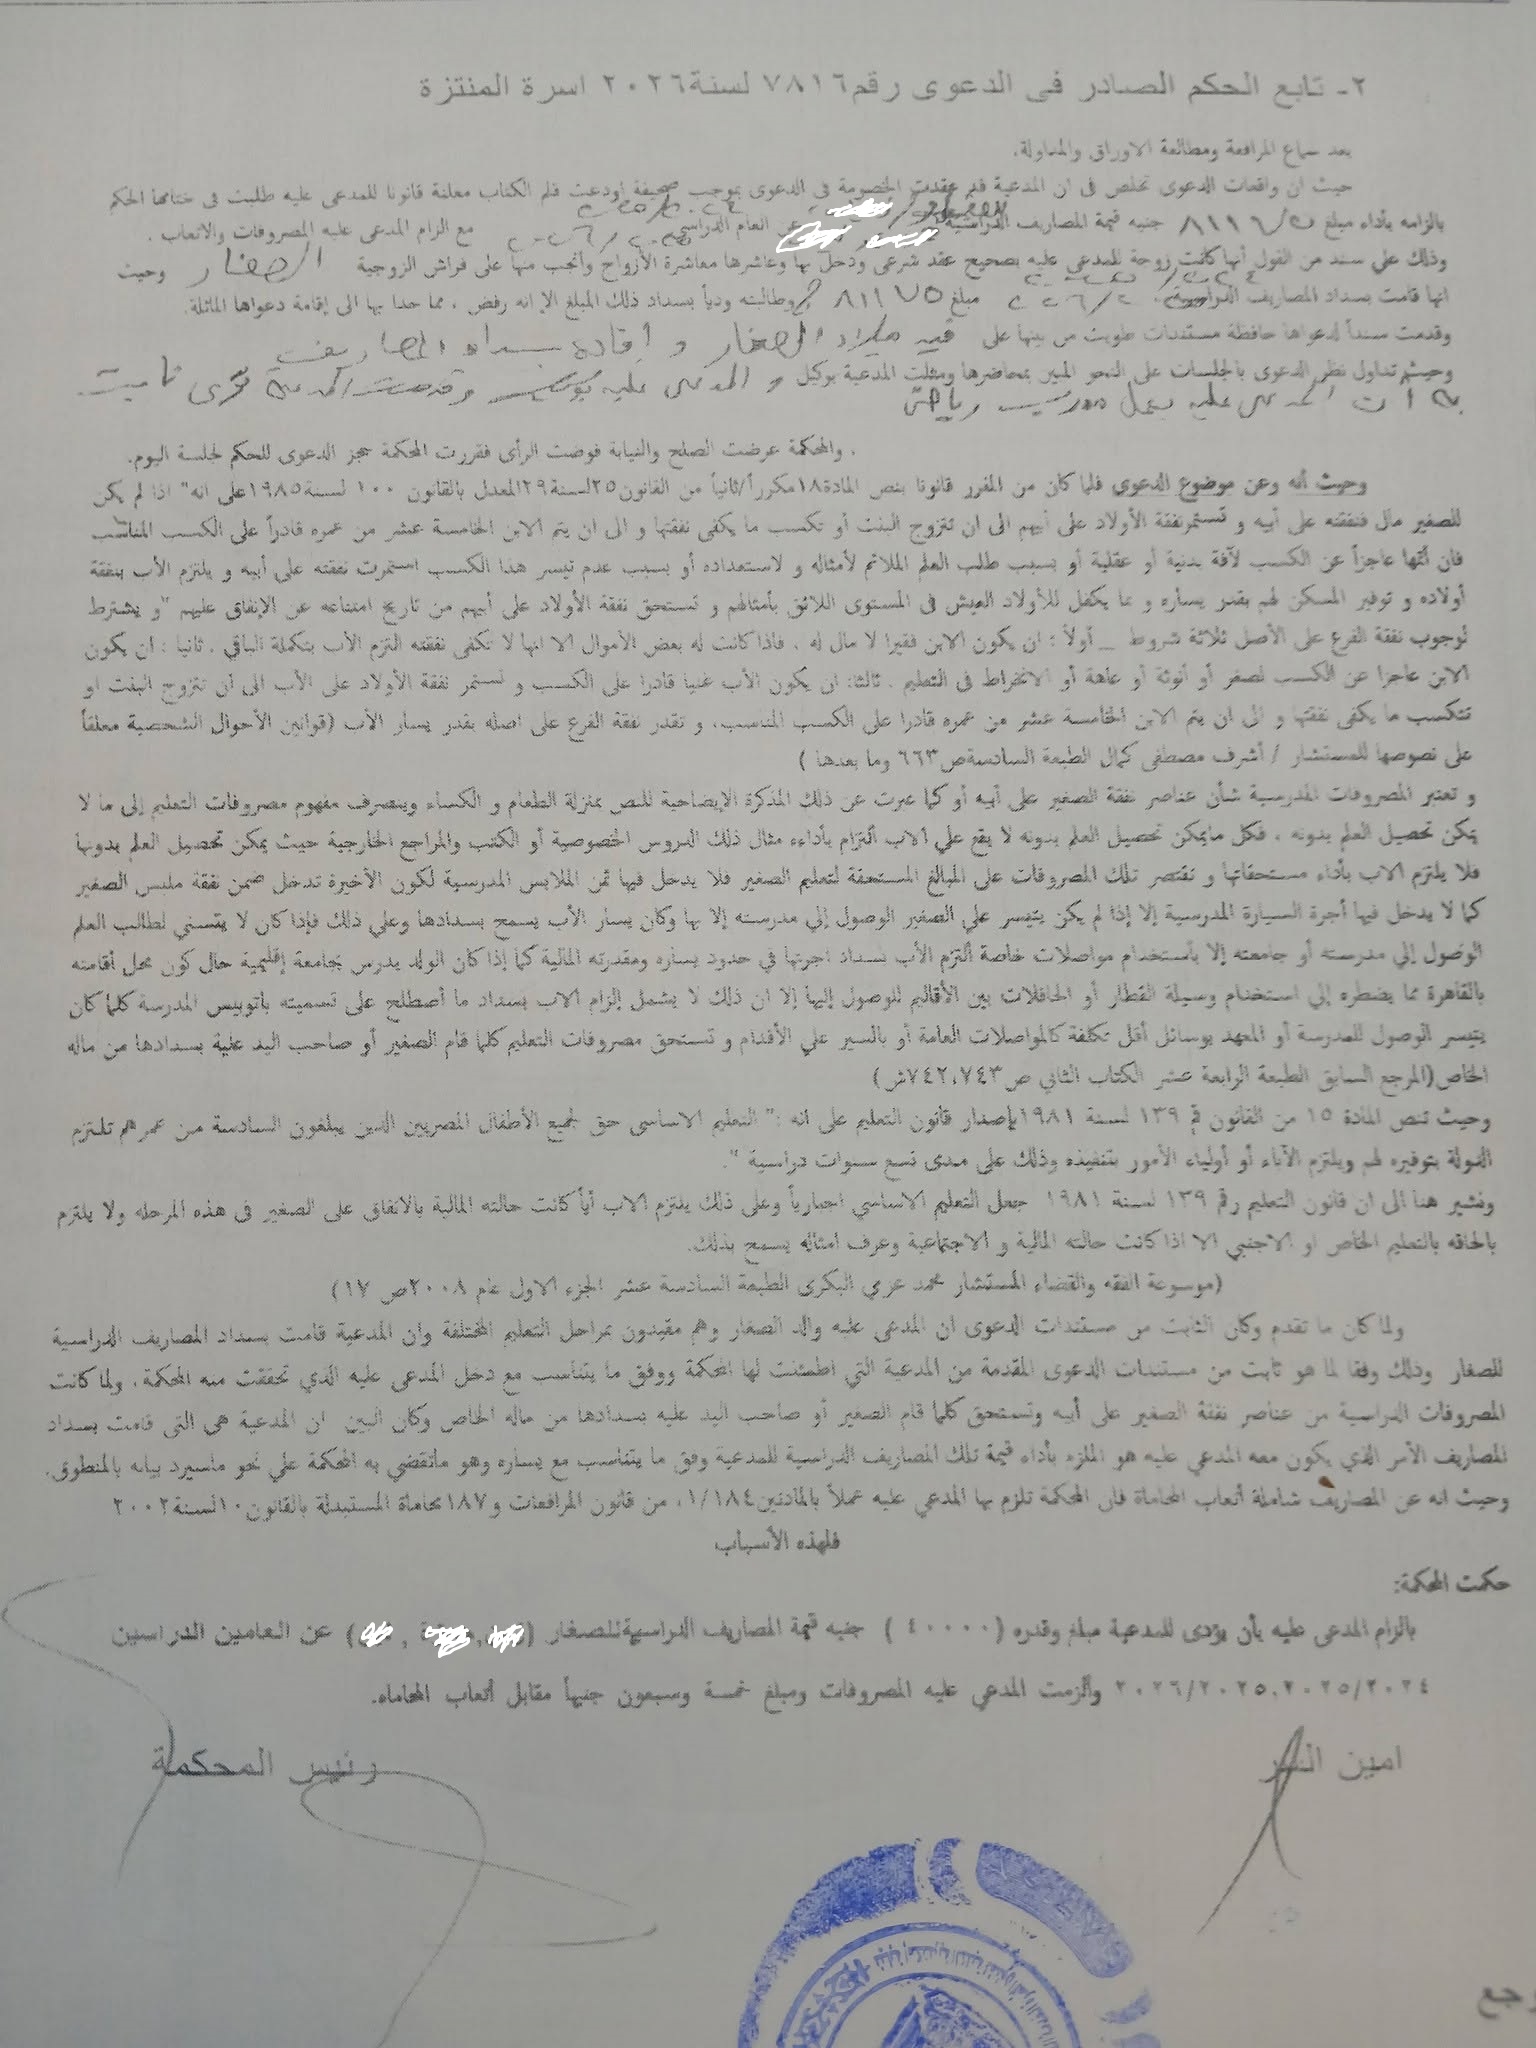 ٢- تابع الحكم الصادر فى الدعوى رقم ٧٨١٦ لسنة ٢٠٢٦ اسرة المنتزة
بعد سماع المرافعة ومطالعة الاوراق والمداولة.
حيث ان واقعات الدعوى تخلص فى ان المدعية قد عقدت الخصومة فى الدعوى بموجب صحيفة اودعت قلم الكتاب معلنة قانونا للمدعى عليه طلبت فى ختامها الحكم
بالزامه بأداء مبلغ ٨١١٧٥ جنيه قيمة المصاريف الدراسية عن العام الدراسى مع الزام المدعى عليه المصروفات والاتعاب .
وذلك علي سند من القول أنها كانت زوجة للمدعي عليه بصحيح عقد شرعى ودخل بها وعاشرها معاشرة الأزواج وأنجب منها على فراش الزوجية الصغار وحيث
انها قامت بسداد المصاريف الدراسية مبلغ ٨١١٧٥ وطالبته ودياً بسداد ذلك المبلغ الا إنه رفض ، مما حدا بها الى إقامة دعواها الماثلة.
وقدمت سنداً لدعواها حافظة مستندات طويت من بينها على قيد ميلاد الصغار و إفادة بسداد المصاريف
وحيث تداول نظر الدعوى بالجلسات على النحو المبين بمحاضرها ومثلت المدعية بوكيل و المدعى عليه بوكيل وقدمت المدعية تحرى ثابت
به أن المدعى عليه يعمل مدرس رياض
، والمحكمة عرضت الصلح والنيابة فوضت الرأى فقررت المحكمة حجز الدعوى للحكم لجلسة اليوم.
وحيث أنه وعن موضوع الدعوى فلما كان من المقرر قانونا بنص المادة ١٨ مكرراً/ثانياً من القانون ٢٥ لسنة ٢٩ المعدل بالقانون ١٠٠ لسنة ١٩٨٥ على انه" اذا لم يكن
للصغير مال فنفقته على أبيه و تستمر نفقة الأولاد على أبيهم الى ان تتزوج البنت أو تكسب ما يكفى نفقتها و الى ان يتم الابن الخامسة عشر من عمره قادراً على الكسب المناسب
فان أتمها عاجزاً عن الكسب لآفة بدنية أو عقلية أو بسبب طلب العلم الملائم لأمثاله و لاستعداده أو بسبب عدم تيسر هذا الكسب استمرت نفقته على أبيه و يلتزم الأب بنفقة
أولاده و توفير المسكن لهم بقدر يساره و بما يكفل للأولاد العيش فى المستوى اللائق بأمثالهم و تستحق نفقة الأولاد على أبيهم من تاريخ امتناعه عن الإنفاق عليهم "و يشترط
لوجوب نفقة الفرع على الأصل ثلاثة شروط _ أولاً : ان يكون الابن فقيرا لا مال له ، فاذا كانت له بعض الأموال الا انها لا تكفى نفقته التزم الأب بتكملة الباقى ، ثانيا : ان يكون
الابن عاجزا عن الكسب لصغر أو أنوثة أو عاهة أو الانخراط فى التعليم . ثالثا: ان يكون الأب غنيا قادرا على الكسب و تستمر نفقة الأولاد على الأب الى ان تتزوج البنت او
تتكسب ما يكفى نفقتها و الى ان يتم الابن الخامسة عشر من عمره قادرا على الكسب المناسب، و تقدر نفقة الفرع على اصله بقدر يسار الأب (قوانين الأحوال الشخصية معلقاً
على نصوصها للمستشار / أشرف مصطفى كمال الطبعة السادسة ص٦٦٣ وما بعدها )
و تعتبر المصروفات المدرسية شأن عناصر نفقة الصغير على أبيه أو كما عبرت عن ذلك المذكرة الإيضاحية للنص بمنزلة الطعام و الكساء وينصرف مفهوم مصروفات التعليم إلى ما لا
يمكن تحصيل العلم بدونه ، فكل مايمكن تحصيل العلم بدونه لا يقع علي الاب التزام بأداءه مثال ذلك الدروس الخصوصية أو الكتب والمراجع الخارجية حيث يمكن تحصيل العلم بدونها
فلا يلتزم الاب بأداء مستحقاتها و تقتصر تلك المصروفات على المبالغ المستحقة لتعليم الصغير فلا يدخل فيها ثمن الملابس المدرسية لكون الأخيرة تدخل ضمن نفقة ملبس الصغير
كما لا يدخل فيها أجرة السيارة المدرسية إلا إذا لم يكن يتيسر علي الصغير الوصول إلي مدرسته إلا بها وكان يسار الأب يسمح بسدادها وعلي ذلك فإذا كان لا يتسني لطالب العلم
الوصول إلي مدرسته أو جامعته إلا بأستخدام مواصلات خاصة ألتزم الأب بسداد اجرتها في حدود يساره ومقدرته المالية كما إذا كان الولد يدرس بجامعة إقليمية حال كون محل أقامته
بالقاهرة مما يضطره إلي استخدام وسيلة القطار أو الحافلات بين الأقاليم للوصول إليها إلا ان ذلك لا يشمل إلزام الاب بسداد ما أصطلح على تسميته باتوبيس المدرسة كلما كان
يتيسر الوصول للمدرسة أو المعهد بوسائل أقل تكلفة كالمواصلات العامة أو بالسير علي الأقدام و تستحق مصروفات التعليم كلما قام الصغير أو صاحب اليد علية بسدادها من ماله
الخاص(المرجع السابق الطبعة الرابعة عشر الكتاب الثاني ص٧٤٢،٧٤٣ش)
وحيث تنص المادة ١٥ من القانون رقم ١٣٩ لسنة ١٩٨١ بإصدار قانون التعليم على انه :" التعليم الاساسى حق لجميع الأطفال المصريين الذين يبلغون السادسة من عمرهم تلتزم
الدولة بتوفيره لهم ويلتزم الآباء أو أولياء الأمور بتنفيذه وذلك على مدى تسع سنوات دراسية ".
ونشير هنا الى ان قانون التعليم رقم ١٣٩ لسنة ١٩٨١ جعل التعليم الاساسي اجبارياً وعلى ذلك يلتزم الاب أياً كانت حالته المالية بالانفاق على الصغير فى هذه المرحله ولا يلتزم
بالحاقه بالتعليم الخاص او الاجنبي الا اذا كانت حالته المالية و الاجتماعية وعرف امثاله يسمح بذلك.
(موسوعة الفقه والقضاء المستشار محمد عزمي البكرى الطبعة السادسة عشر الجزء الاول عام ٢٠٠٨ ص ١٧ )
ولما كان ما تقدم وكان الثابت من مستندات الدعوى ان المدعى عليه والد الصغار وهم مقيدون بمراحل التعليم المختلفة وان المدعية قامت بسداد المصاريف الدراسية
للصغار وذلك وفقا لما هو ثابت من مستندات الدعوى المقدمة من المدعية التي اطمئنت لها المحكمة ووفق ما يتناسب مع دخل المدعى عليه الذي تحققت منه المحكمة، ولما كانت
المصروفات الدراسية من عناصر نفقة الصغير على أبيه وتستحق كلما قام الصغير أو صاحب اليد عليه بسدادها من ماله الخاص وكان البين ان المدعية هى التى قامت بسداد
المصاريف الأمر الذي يكون معه المدعي عليه هو الملزم بأداء قيمة تلك المصاريف الدراسية للمدعية وفق ما يتناسب مع يساره وهو ماتقضي به المحكمة علي نحو ماسيرد بيانه بالمنطوق.
وحيث انه عن المصاريف شاملة أتعاب المحاماة فان المحكمة تلزم بها المدعي عليه عملاً بالمادتين ١/١٨٤، من قانون المرافعات و ١٨٧ محاماة المستبدلة بالقانون ١٠ لسنة ٢٠٠٢
فلهذه الأسباب
حكمت المحكمة:
بالزام المدعى عليه بأن يؤدى للمدعية مبلغ وقدره (٤٠٠٠٠ ) جنيه قيمة المصاريف الدراسية للصغار ( , , ) عن العامين الدراسين
٢٠٢٥/٢٠٢٤،٢٠٢٦/٢٠٢٥ وألزمت المدعي عليه المصروفات ومبلغ خمسة وسبعون جنيهاً مقابل أتعاب المحاماه.
امين السر
رئيس المحكمة